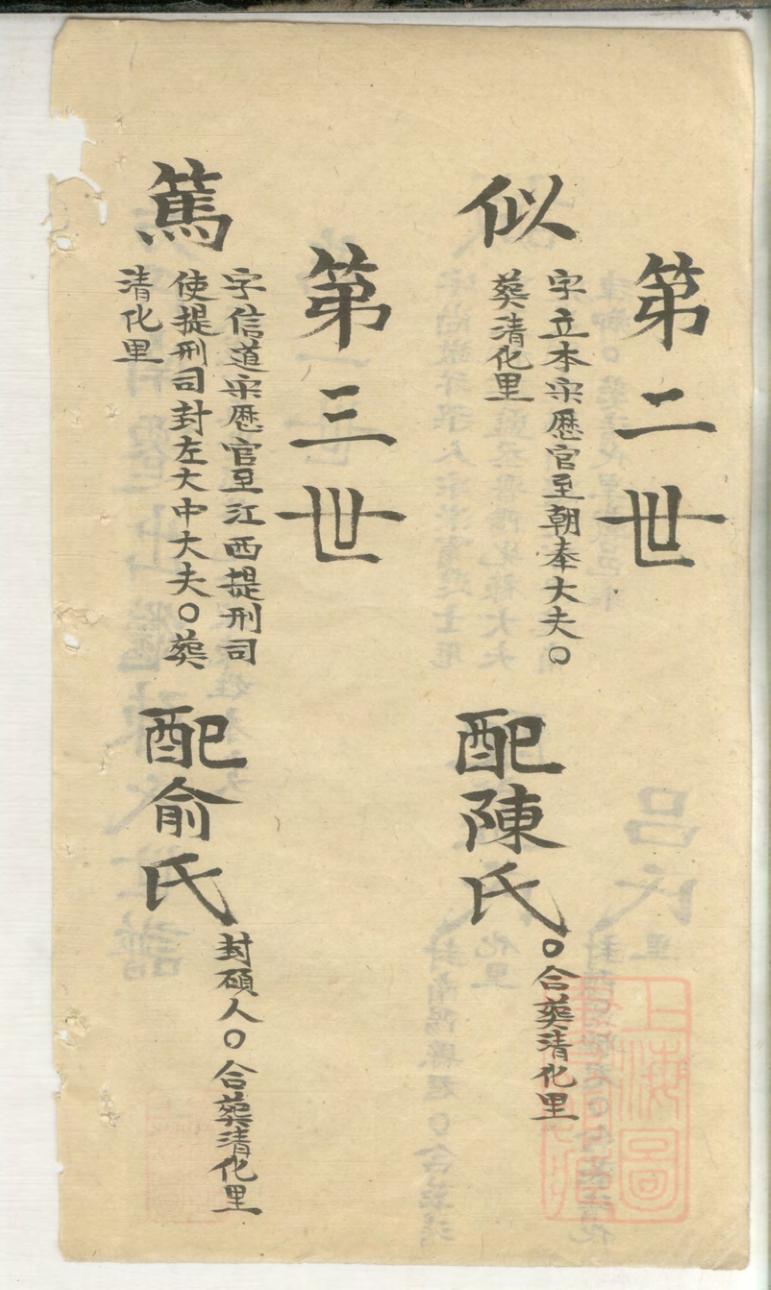 第二世
似
字立本宋歷官至朝奉大夫〇
葬清化里
配陳氏
〇合葬清化里
第三世
篤
字信道宋歷官至江西提刑司
使提刑司封左大中大夫〇葬
清化里
配俞氏
封碩人〇合葬清化里
上海圖